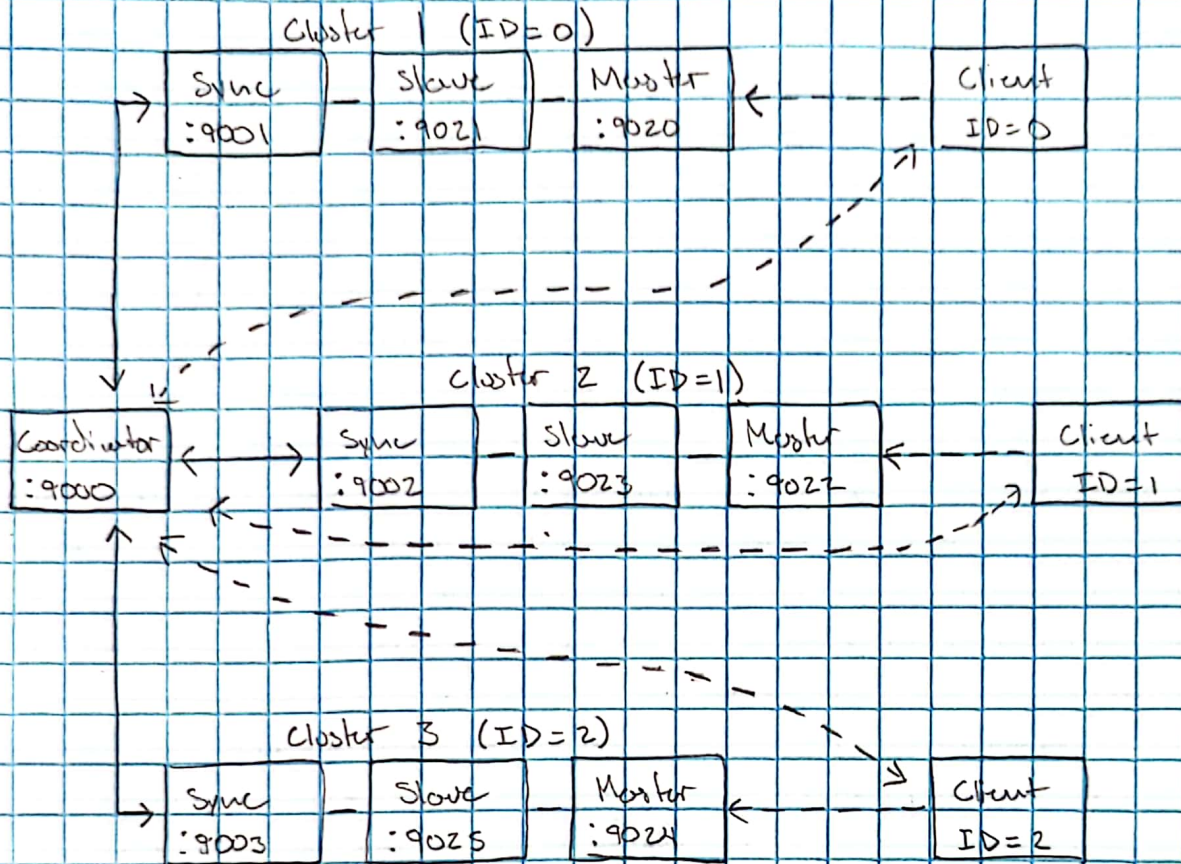 Cluster 1 (ID=0)
Sync
:9001
Slave
:9021
Master
:9020
Client
ID=0
Cluster 2 (ID=1)
Coordinator
:9000
Sync
:9002
Slave
:9023
Master
:9022
Client
ID=1
Cluster 3 (ID=2)
Sync
:9003
Slave
:9025
Master
:9024
Client
ID=2